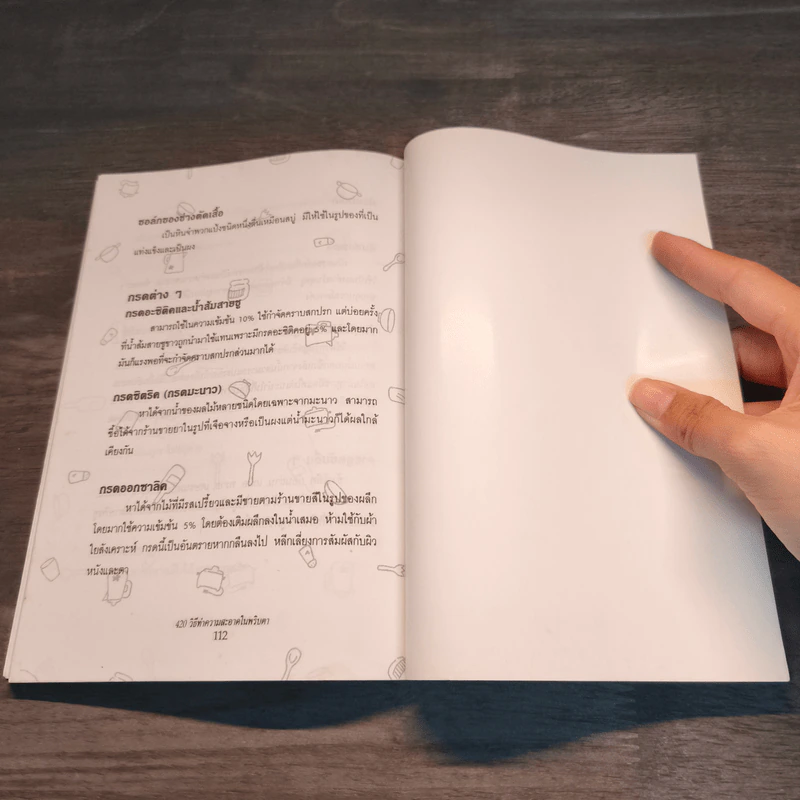 ชอล์กของช่างตัดเสื้อ
เป็นหินจำพวกแป้งชนิดหนึ่งลื่นเหมือนสบู่ มีให้ใช้ในรูปของที่เป็น
แท่งแข็งและเป็นผง
กรดต่าง ๆ
กรดอะซิติคและน้ำส้มสายชู
สามารถใช้ในความเข้มข้น 10% ใช้กำจัดคราบสกปรก แต่บ่อยครั้ง
ที่น้ำส้มสายชูขาวถูกนำมาใช้แทนเพราะมีกรดอะซิติคอยู่ 5% และโดยมาก
มันก็แรงพอที่จะกำจัดคราบสกปรกส่วนมากได้
กรดซิตริค (กรดมะนาว)
หาได้จากน้ำของผลไม้หลายชนิดโดยเฉพาะจากมะนาว สามารถ
ซื้อได้จากร้านขายยาในรูปที่เจือจางหรือเป็นผงแต่น้ำมะนาวก็ได้ผลใกล้
เคียงกัน
กรดออกซาลิค
หาได้จากไม้ที่มีรสเปรี้ยวและมีขายตามร้านขายสีในรูปของผลึก
โดยมากใช้ความเข้มข้น 5% โดยต้องเติมผลึกลงในน้ำเสมอ ห้ามใช้กับผ้า
ใยสังเคราะห์ กรดนี้เป็นอันตรายหากกลืนลงไป หลีกเลี่ยงการสัมผัสกับผิว
หนังและตา
420 วิธีทำความสะอาดในพริบตา
112